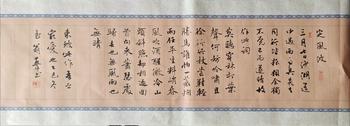 定風波
三月七日沙湖道
中遇雨雨具先去
同行皆狼狽余獨
不覺已而遂晴故
作此詞
莫聽穿林打葉
聲何妨吟嘯且
徐行竹杖芒鞋輕
勝馬誰怕一蓑煙
雨任平生料峭春
風吹酒醒微冷山
頭斜照却相迎回
首向來蕭瑟處
歸去也無風雨也
無晴
東坡此作